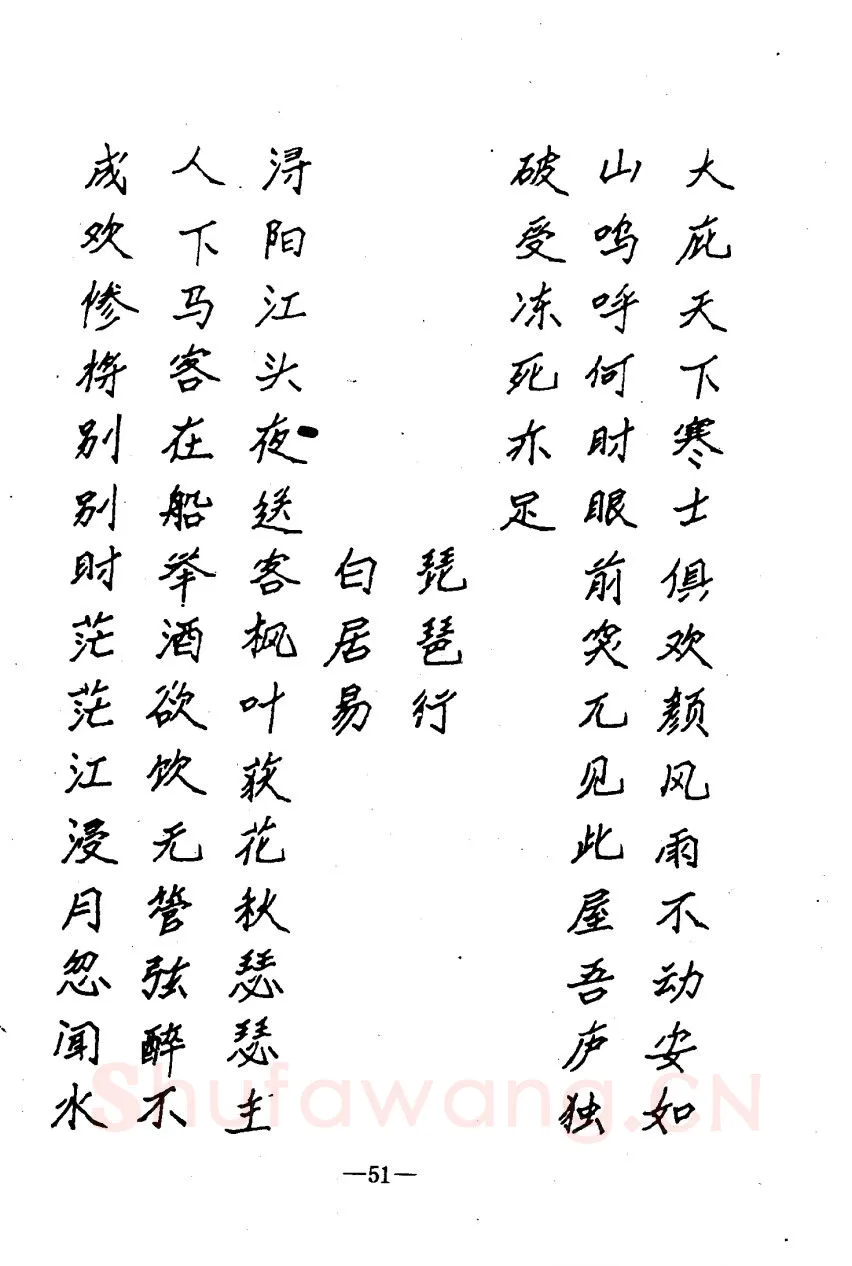 大庇天下寒士俱欢颜风雨不动安如
山呜呼何时眼前突兀见此屋吾庐独
破受冻死亦足
琵琶行
白居易
浔阳江头夜送客枫叶荻花秋瑟瑟主
人下马客在船举酒欲饮无管弦醉不
成欢惨将别别时茫茫江浸月忽闻水
Shufawang.CN
—51—